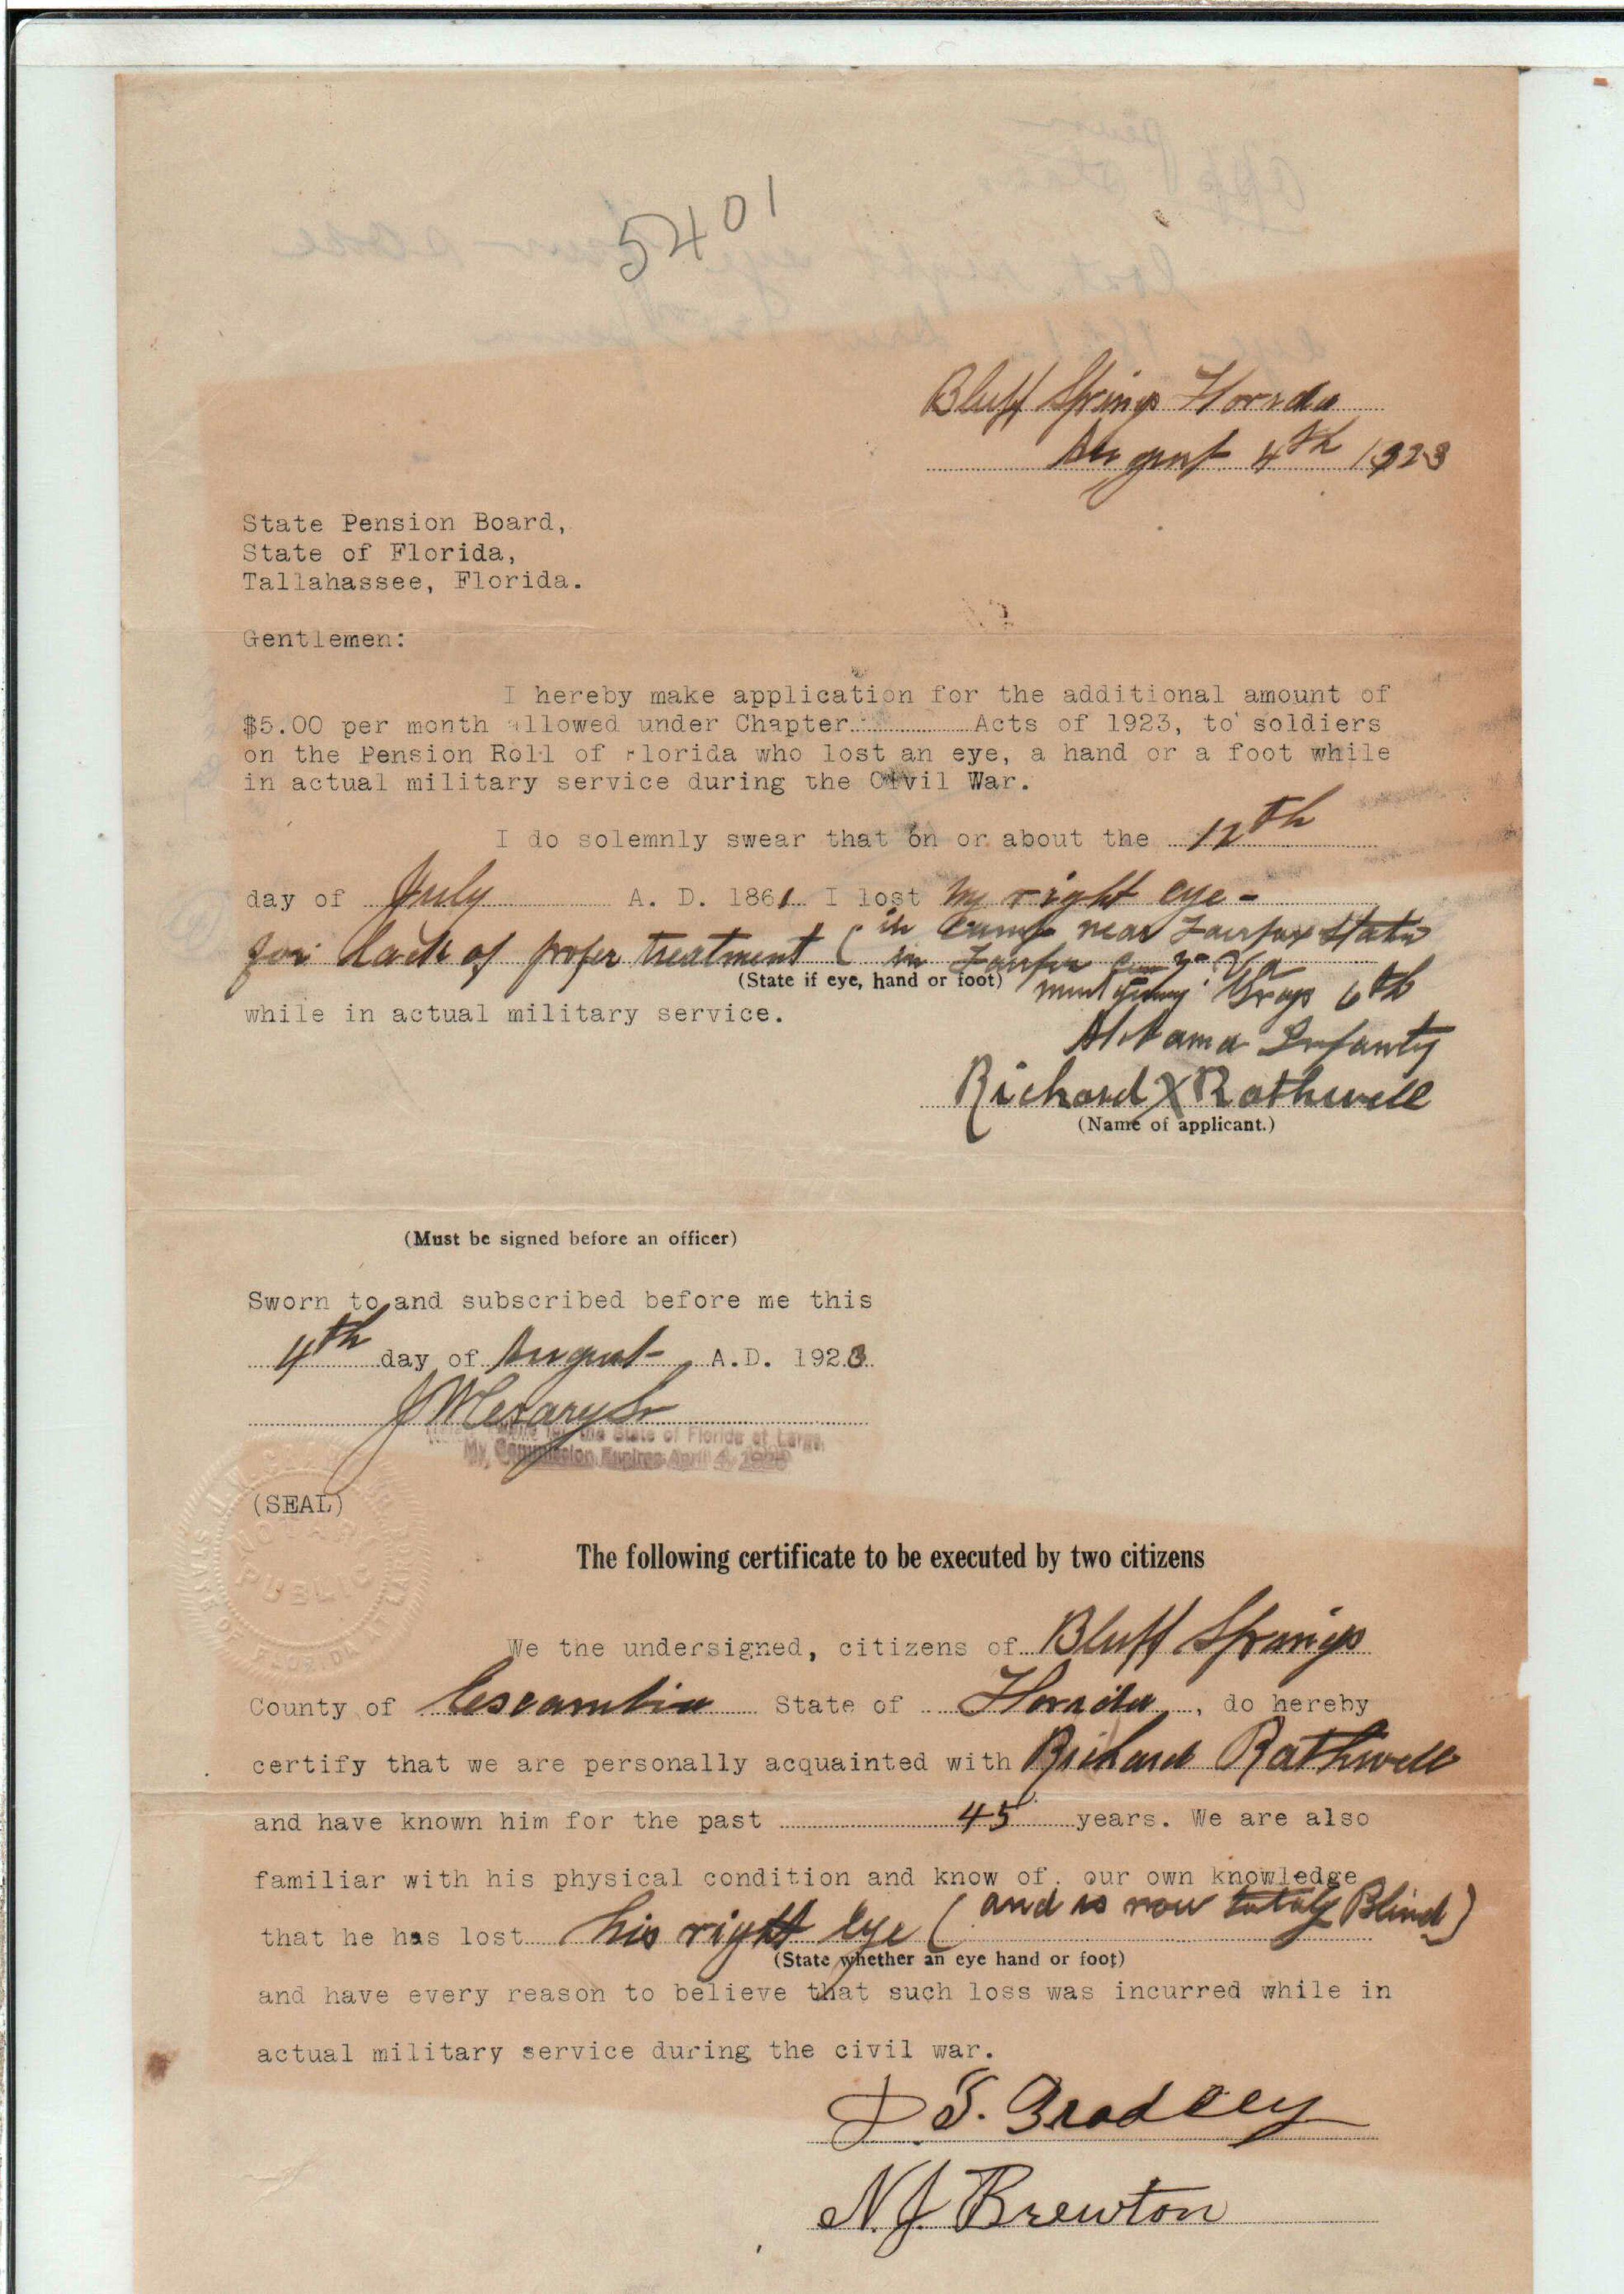 5401
Bluff Springs Florida
August 4th 1923
State Pension Board,
State of Florida,
Tallahassee, Florida.
Gentlemen:
I hereby make application for the additional amount of
$5.00 per month allowed under Chapter Acts of 1923, to soldiers
on the Pension Roll of Florida who lost an eye, a hand or a foot while
in actual military service during the Civil War.
I do solemnly swear that on or about the 12th
day of July A. D. 1861 I lost my right eye -
for lack of proper treatment ( in Camp near Fairfax Station
in Fairfax Va
(State if eye, hand or foot) Grays 6th
while in actual military service.
Alabama Infanty
Richard X Rothwell
(Name of applicant.)
(Must be signed before an officer)
Sworn to and subscribed before me this
4th day of August A.D. 1923
for the State of Florida at Large.
My Commission Expires April 4,
(SEAL)
NOTARY
PUBLIC
STATE OF FLORIDA AT LARGE
The following certificate to be executed by two citizens
We the undersigned, citizens of Bluff Springs
County of Escambia State of Florida, do hereby
certify that we are personally acquainted with Richard Rothwell
and have known him for the past 45 years. We are also
familiar with his physical condition and know of our own knowledge
that he has lost his right Eye ( and is now totaly Blind)
(State whether an eye hand or foot)
and have every reason to believe that such loss was incurred while in
actual military service during the civil war.
S. Bradley
N. J. Brewton